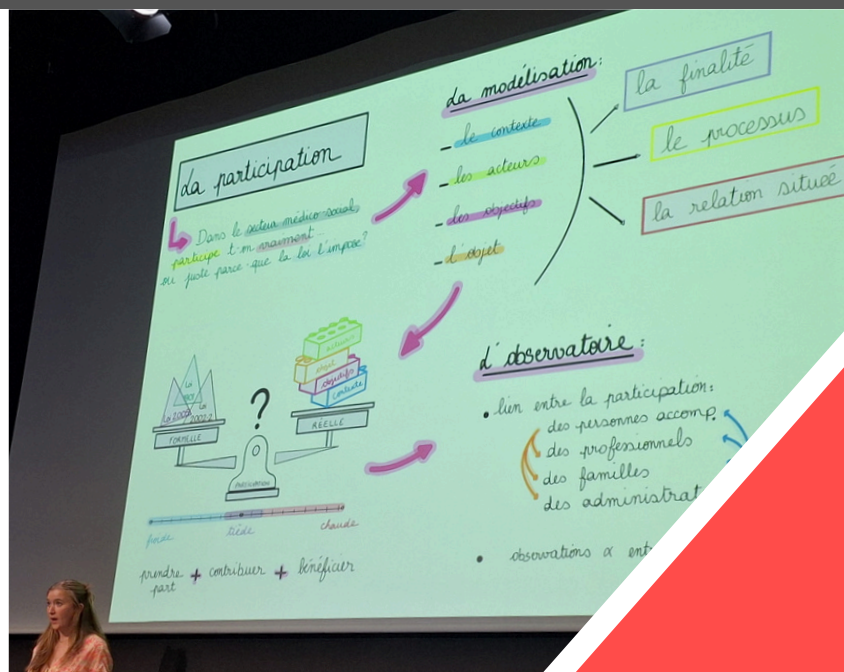 La participation
Dans le secteur médico-social,
participe t-on vraiment
ou juste parce-que la loi l'impose?
La modélisation:
- le contexte
- les acteurs
- les objectifs
- l'objet
la finalité
le processus
la relation située
acteurs
objet
objectifs
contexte
?
Loi
Loi 2005
Loi
2002-2
FORMELLE
RÉELLE
PARTICIPATION
froide
tiède
chaude
prendre
part
+ contribuer + bénéficier
L'observatoire:
• lien entre la participation:
des personnes accomp.
des professionnels
des familles
des administrat
• observations